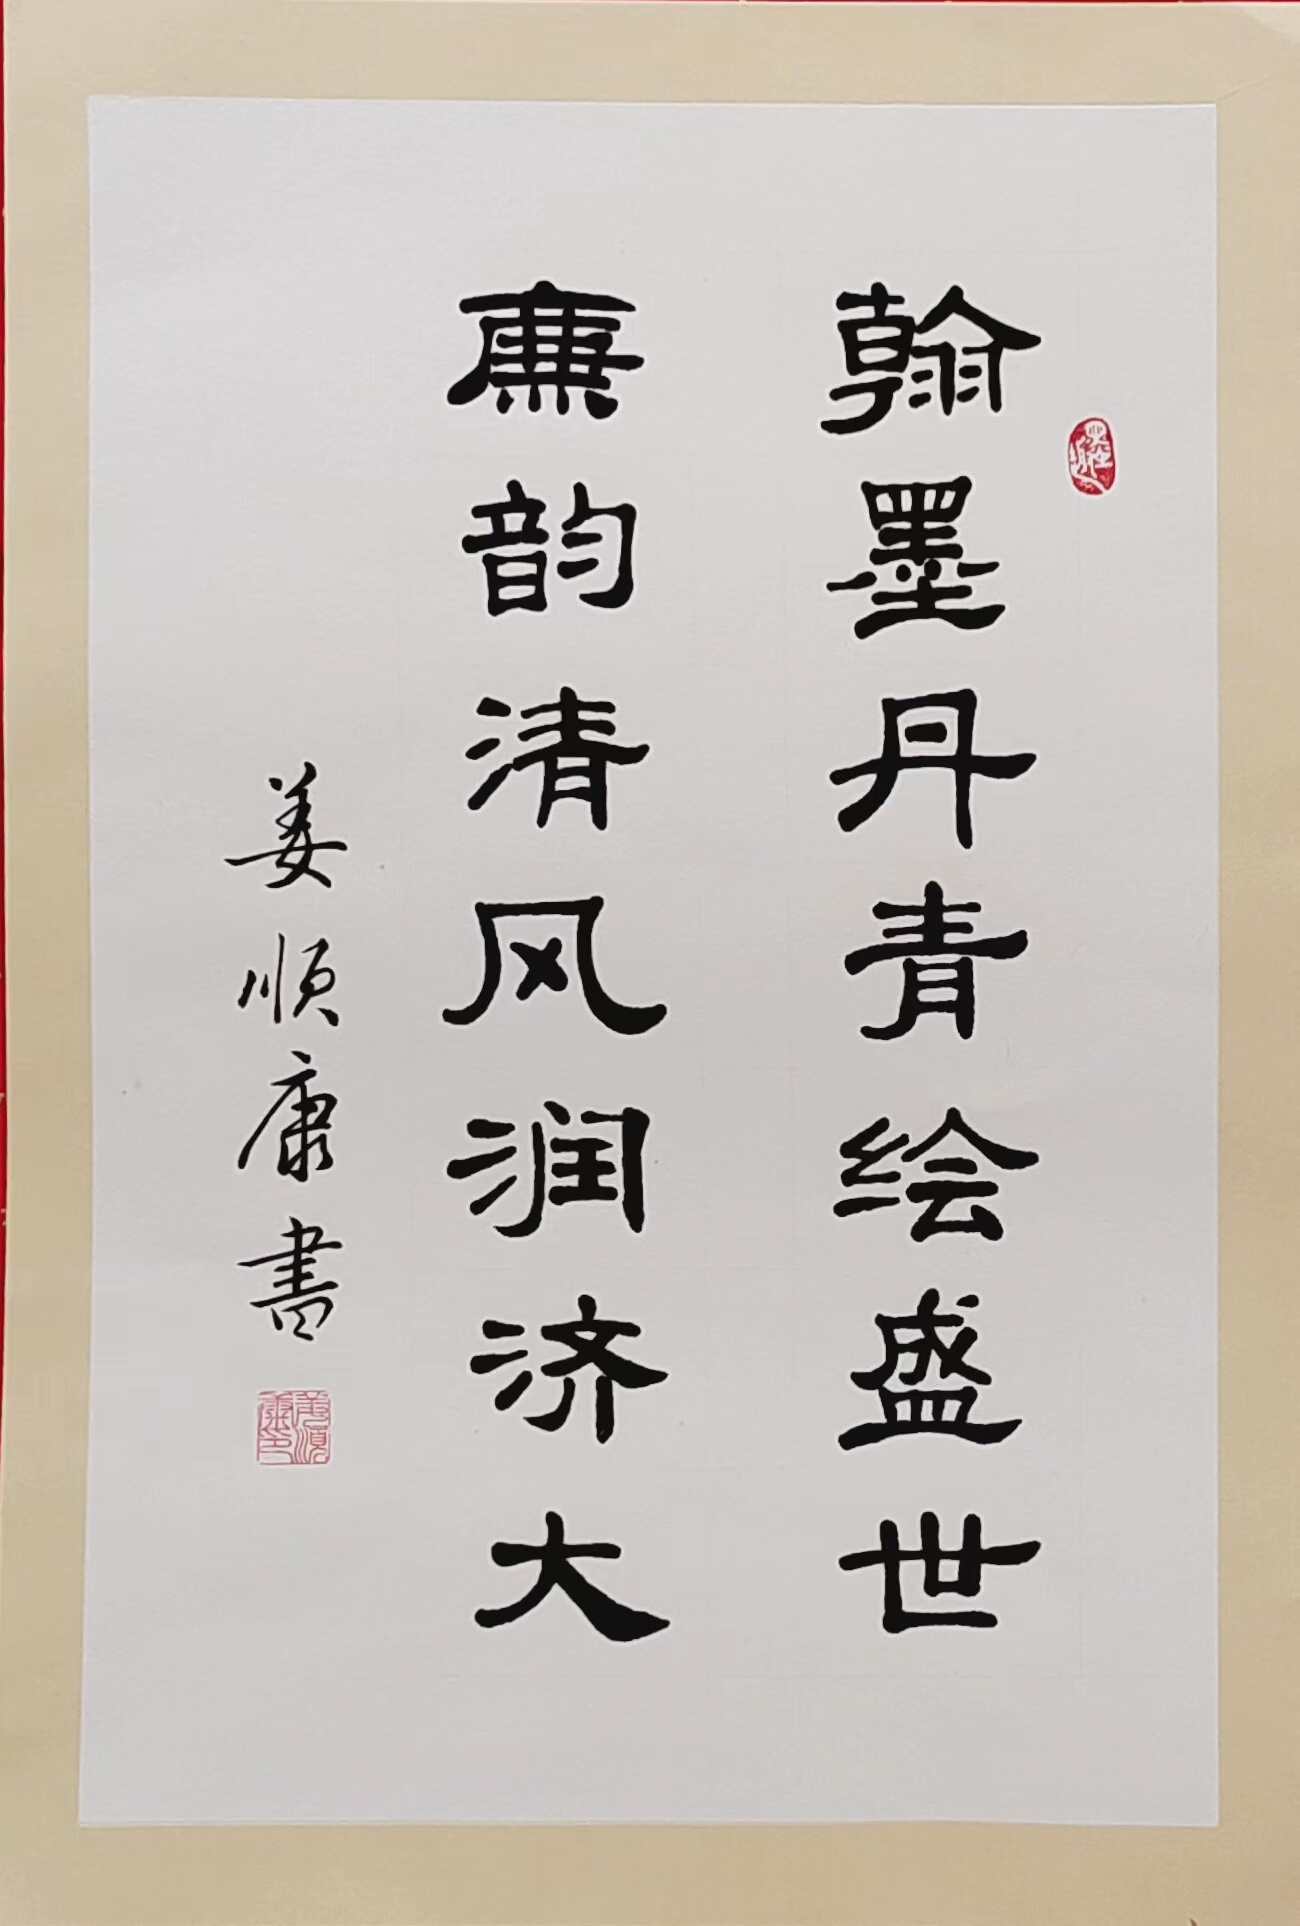 翰墨丹青绘盛世
廉韵清风润济大
姜顺康書